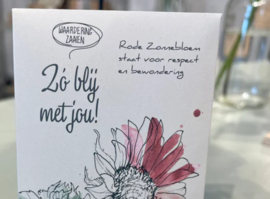 WAARDERINGS
ZADEN
Rode Zonnebloem
staat voor respect
en bewondering
Zó blij
met jou!